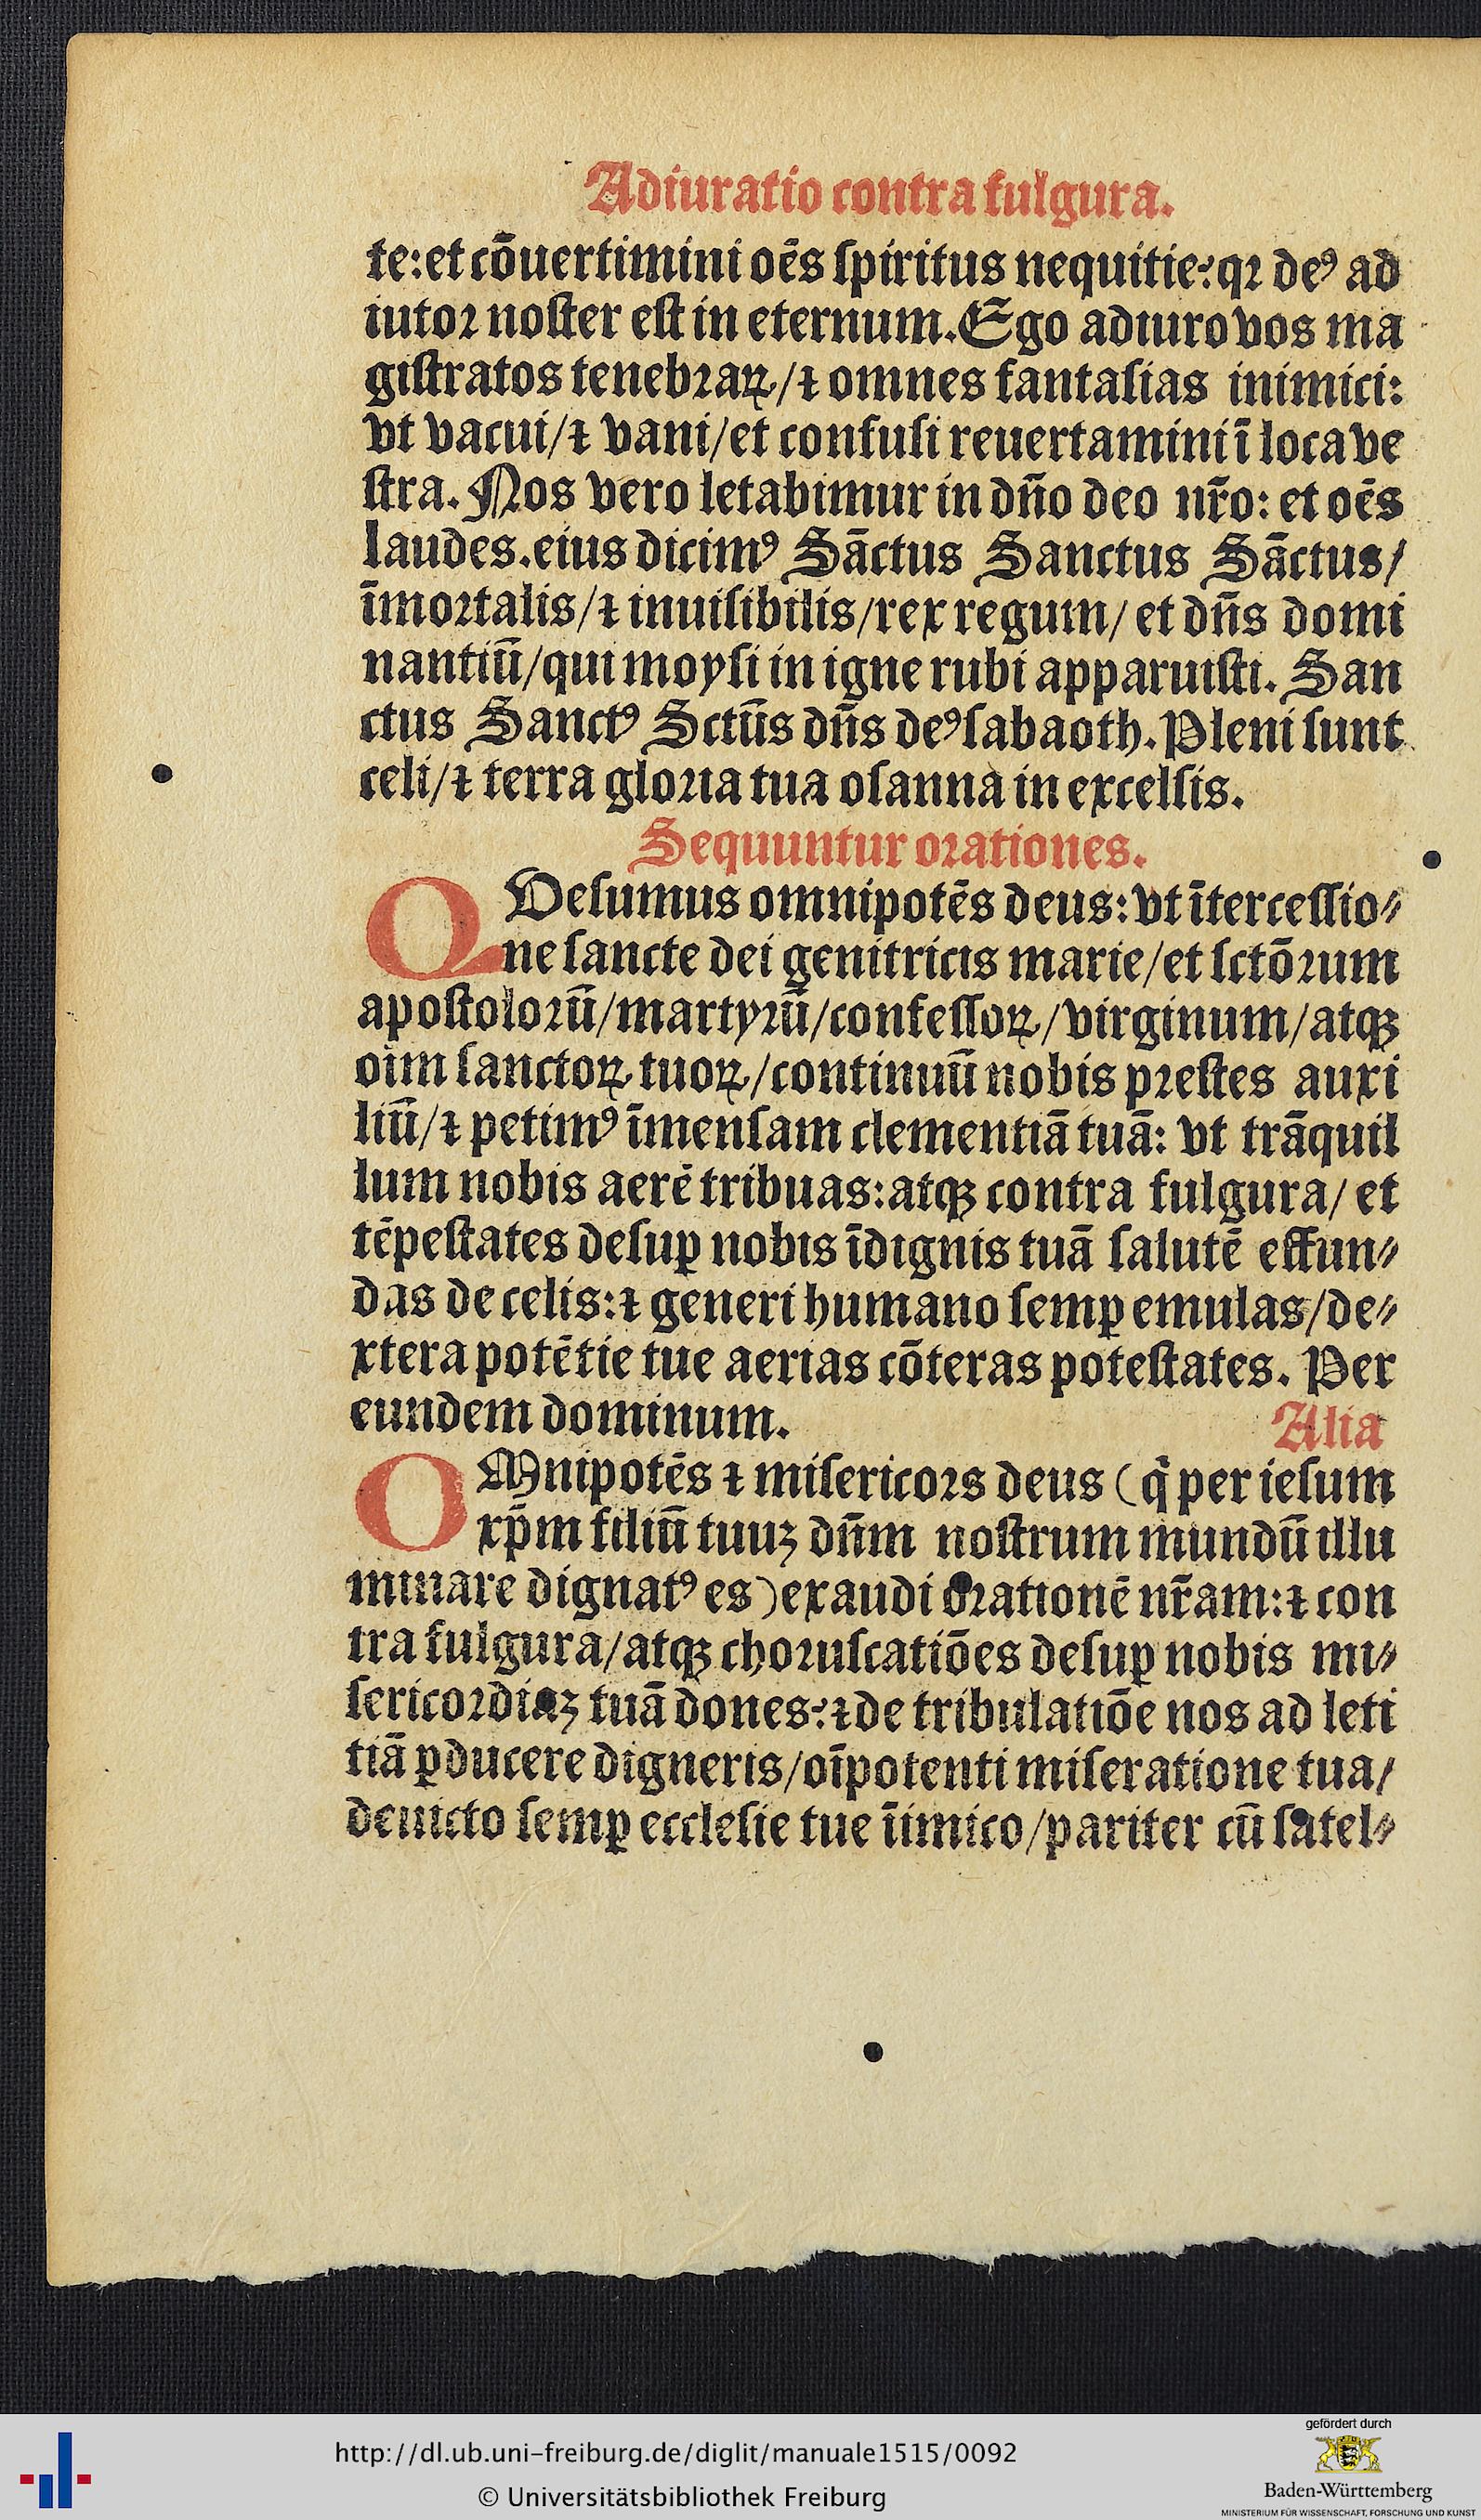 Adiuratio contra fulgura.
te: et cōuertimini oēs ſpiritus nequitie: qꝛ deꝰ ad
iutoꝛ noſter eſt in eternum. Ego adiuro vos ma
giſtratos tenebꝛaꝝ/⁊ omnes fantaſias inimici:
vt vacui/⁊ vani/et confuſi reuertamini ī loca ve
ſtra. Nos vero letabimur in dn̄o deo nr̄o: et oēs
laudes.eius dicimꝰ Sāctus Sanctus Sāctus/
īmoꝛtalis/⁊ inuiſibilis/rex regum/ et dn̄s domi
nantiū/qui moyſi in igne rubi apparuiſti. San
ctus Sanctꝰ Sctūs dn̄s deꝰ ſabaoth. Pleni ſunt
celi/⁊ terra gloꝛia tua oſanna in excelſis.
Sequuntur oꝛationes.
QVeſumus omnipotēs deus: vt ītercеſſio⸗
ne ſancte dei genitricis marie/et ſctōꝛum
apoſtoloꝛū/martyꝛū/confeſſoꝝ/virginum/atqꝫ
oim̄ ſanctoꝝ tuoꝝ/continuū nobis pꝛeſtes auxi
liū/⁊ petimꝰ īmenſam clementiā tuā: vt trāquil
lum nobis aerē tribuas: atqꝫ contra fulgura/ et
tēpeſtates deſuꝑ nobis īdignis tuā ſalutē effun⸗
das de celis: ⁊ generi humano ſemꝑ emulas/de⸗
xtera potētie tue aerias cōteras poteſtates. Per
eundem dominum.
Alia
OMnipotēs ⁊ miſericoꝛs deus (q̄ per ieſum
xp̄m filiū tuuꝫ dn̄m noſtrum mundū illu
minare dignatꝰ es) exaudi oꝛationē nr̄am: ⁊ con
tra fulgura/atqꝫ choꝛuſcatiōes deſuꝑ nobis mi⸗
ſericoꝛdiaꝫ tuā dones: ⁊ de tribulatiōe nos ad leti
tiā ꝑducere digneris/oīpotenti miſeratione tua/
deuicto ſemꝑ eccleſie tue īimico/pariter cū ſatel⸗
http://dl.ub.uni-freiburg.de/diglit/manuale1515/0092
© Universitätsbibliothek Freiburg
gefördert durch
Baden-Württemberg
MINISTERIUM FÜR WISSENSCHAFT, FORSCHUNG UND KUNST